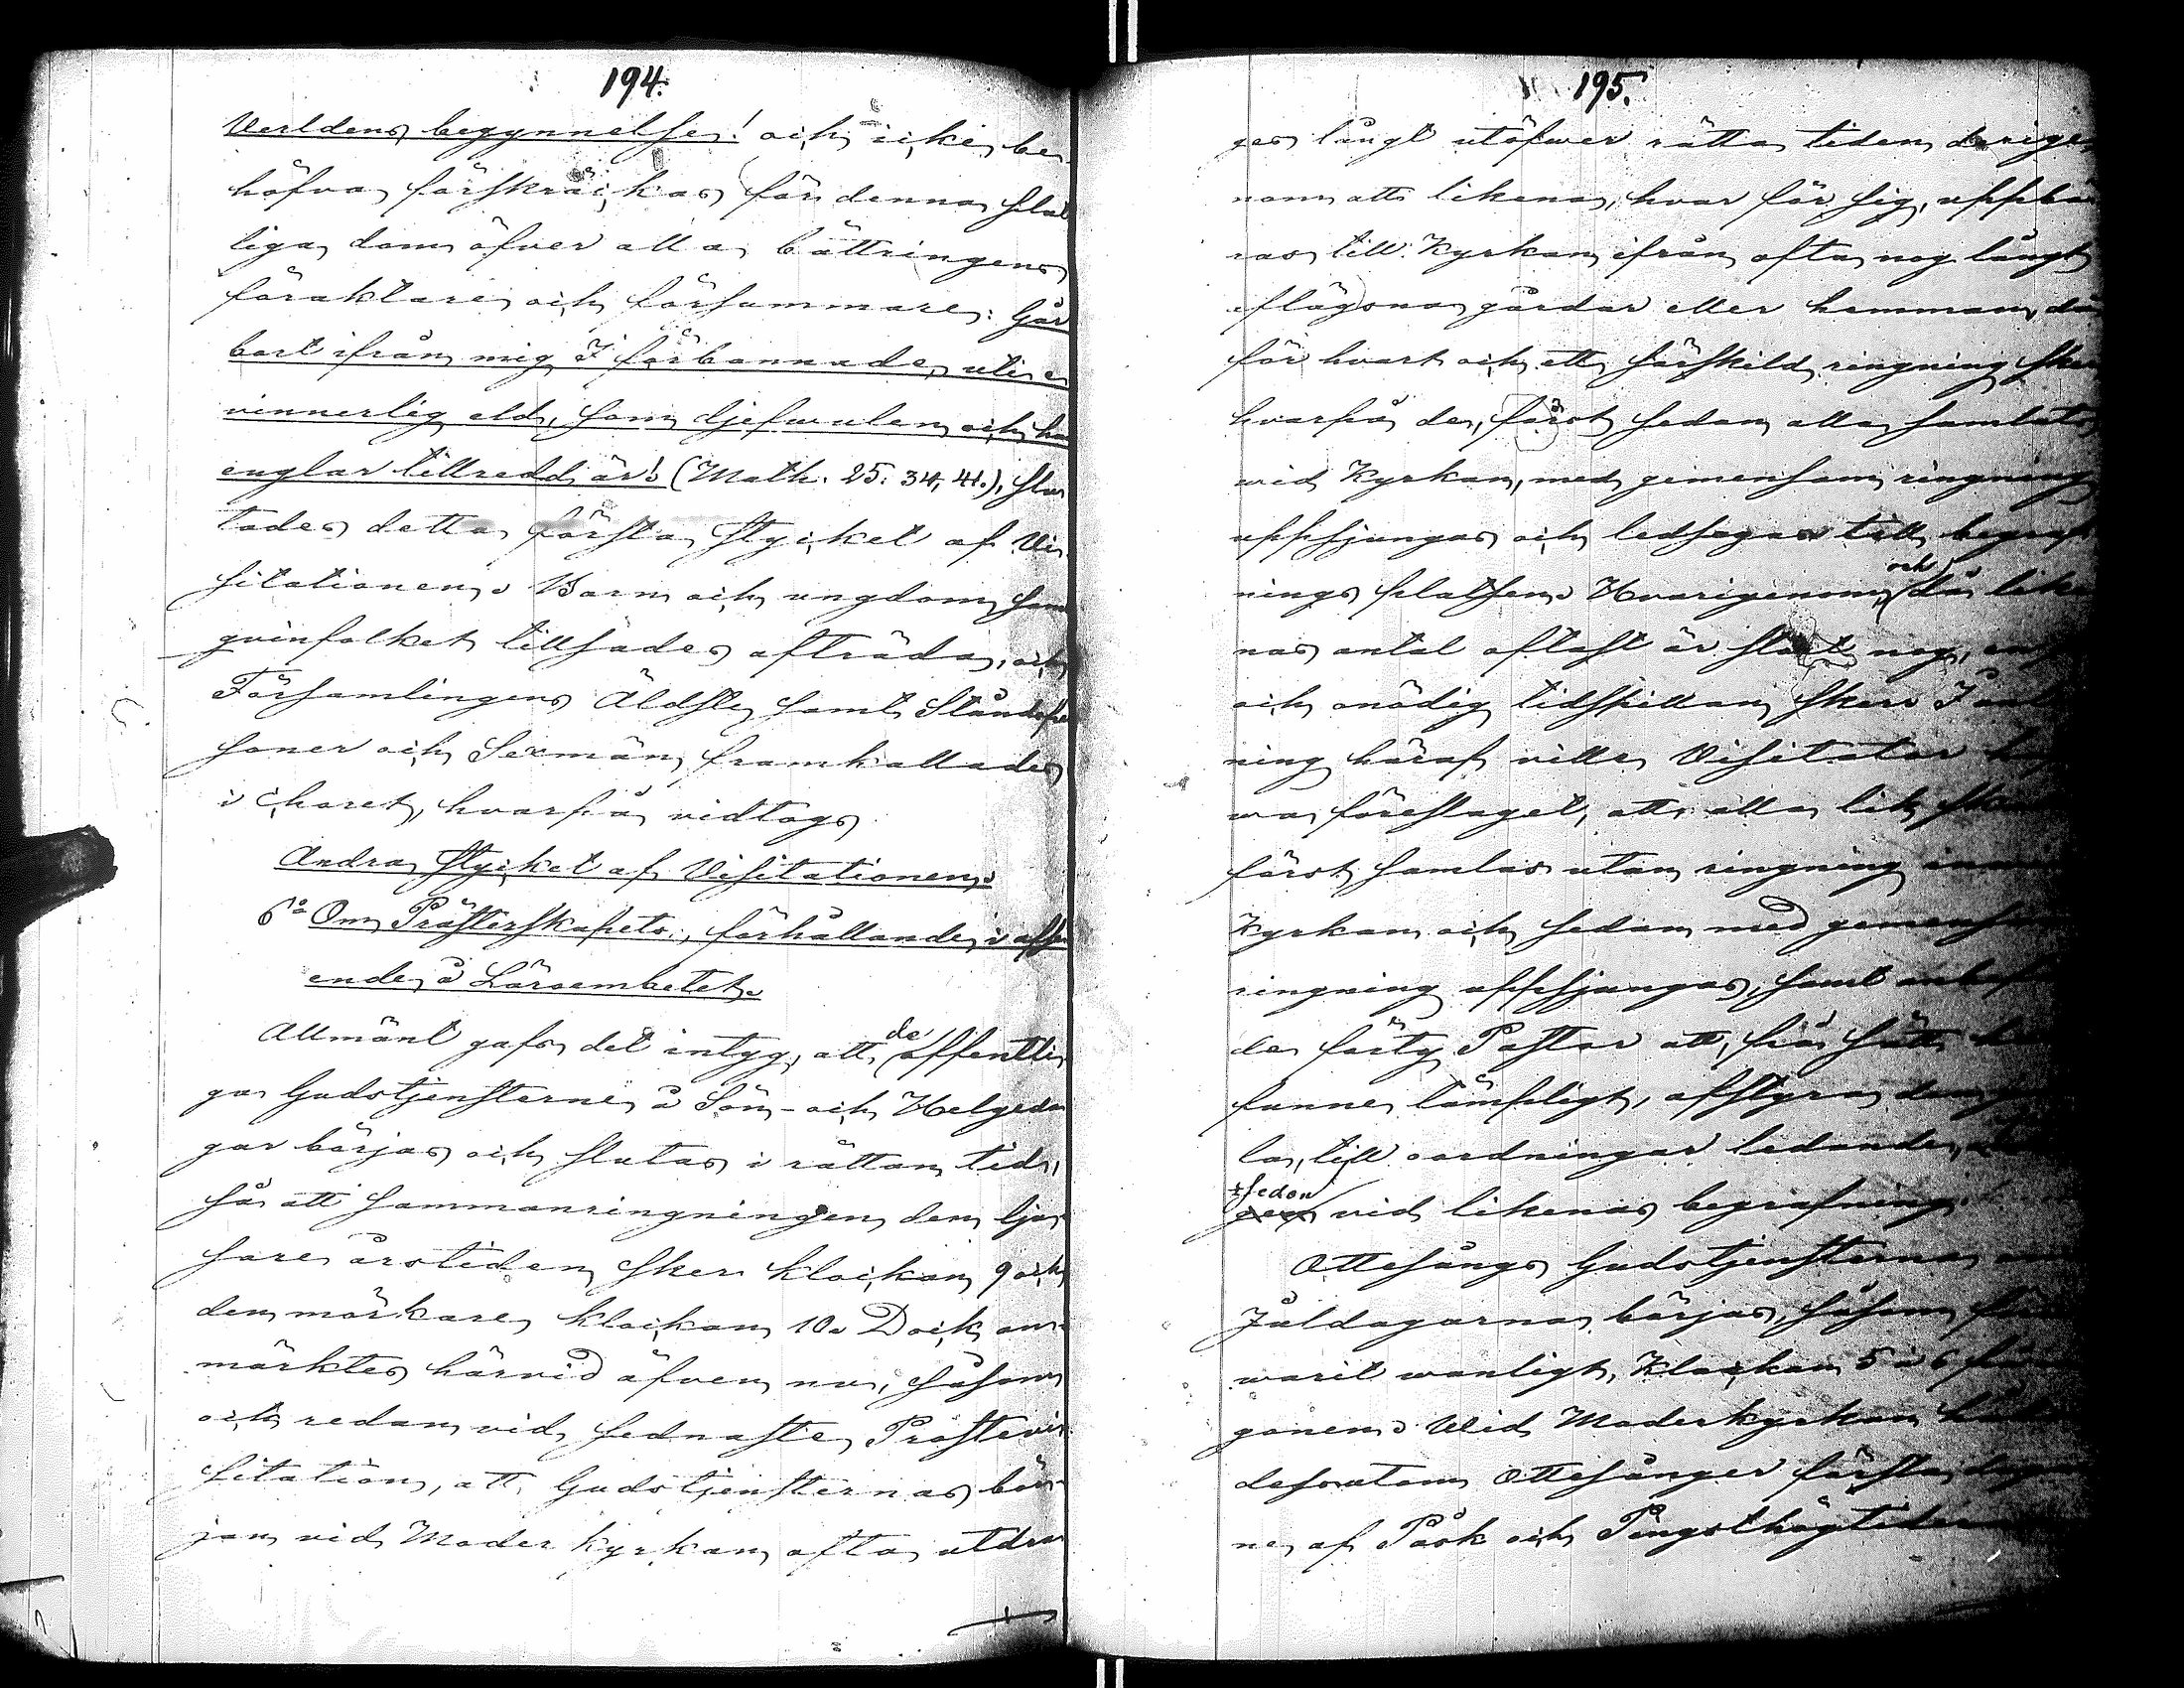 194.
Verldens begynnelse! och icke be-
höfva förskräckas för denna slut
liga dom öfver alla bättringens
föraktare och försummare: Går
bort ifrån mig I förbannade, uti e
vinnerlig eld, som djefwulen och ha
englar tillredd är! (Math. 25: 34, 41.), slu
tades detta första stycket af Vi-
sitationen. Barn och ungdom samt
qvinfolket tillsades afträda, och
Församlingens Äldste samt Ståndsper
soner och Sexmän framkallades
i choret, hvarpå vidtogs
Andra stycket af Visitationen.
6:o Om Prästerskapets förhållande i afse
ende å Läroembetet.
Allmänt gafs det intyg, att de offentli
ga Gudstjensterne å Sön- och Helgeda
gar börjas och slutas i rättan tid,
så att sammanringningen den lju-
sare årstiden sker klockan 9 och
den mörkare klockan 10. Dock an-
märktes härvid äfven nu, såsom
och redan vid sednaste Prostevi-
sitation, att Gudstjensternas bör-
jan vid Moder kyrkan ofta utdra
195.
ges långt utöfwer rätta tiden derige
nom att likena, hvar för sig, uppbä
ras till Kyrkan ifrån ofta nog långt
aflägsna gårdar eller hemman, då
för hvart och ett särskild ringning sker
hvarpå de, först sedan alla samlats
wid Kyrkan, med gemensam ringning
uppsjungas och ledsagas till begraf
nings platsen. Hvarigenom, och då like
nas antal oftast är stort nog, en
och onödig tidspillan sker. I anl
ning häraf ville Visitator
wa föreslaget, att alla lik sk
först samlas utan ringning
Kyrkan och sedan med gemensam
ringning uppsjungas, samt anbef
de förty Pastor att, på sätt han
funne lämpligt, afstyra den
la, till oordningar ledande,
seden vid likenas begrafning.
Ottesångs Gudstjensterna
Juldagarna börjas, såsom för
warit wanligt, Klockan 5 à 6 för
gonen. Wid Moderkyrkan hål
desutom Ottesånger första dagar
ne af Påsk och Pingsthögtiderne